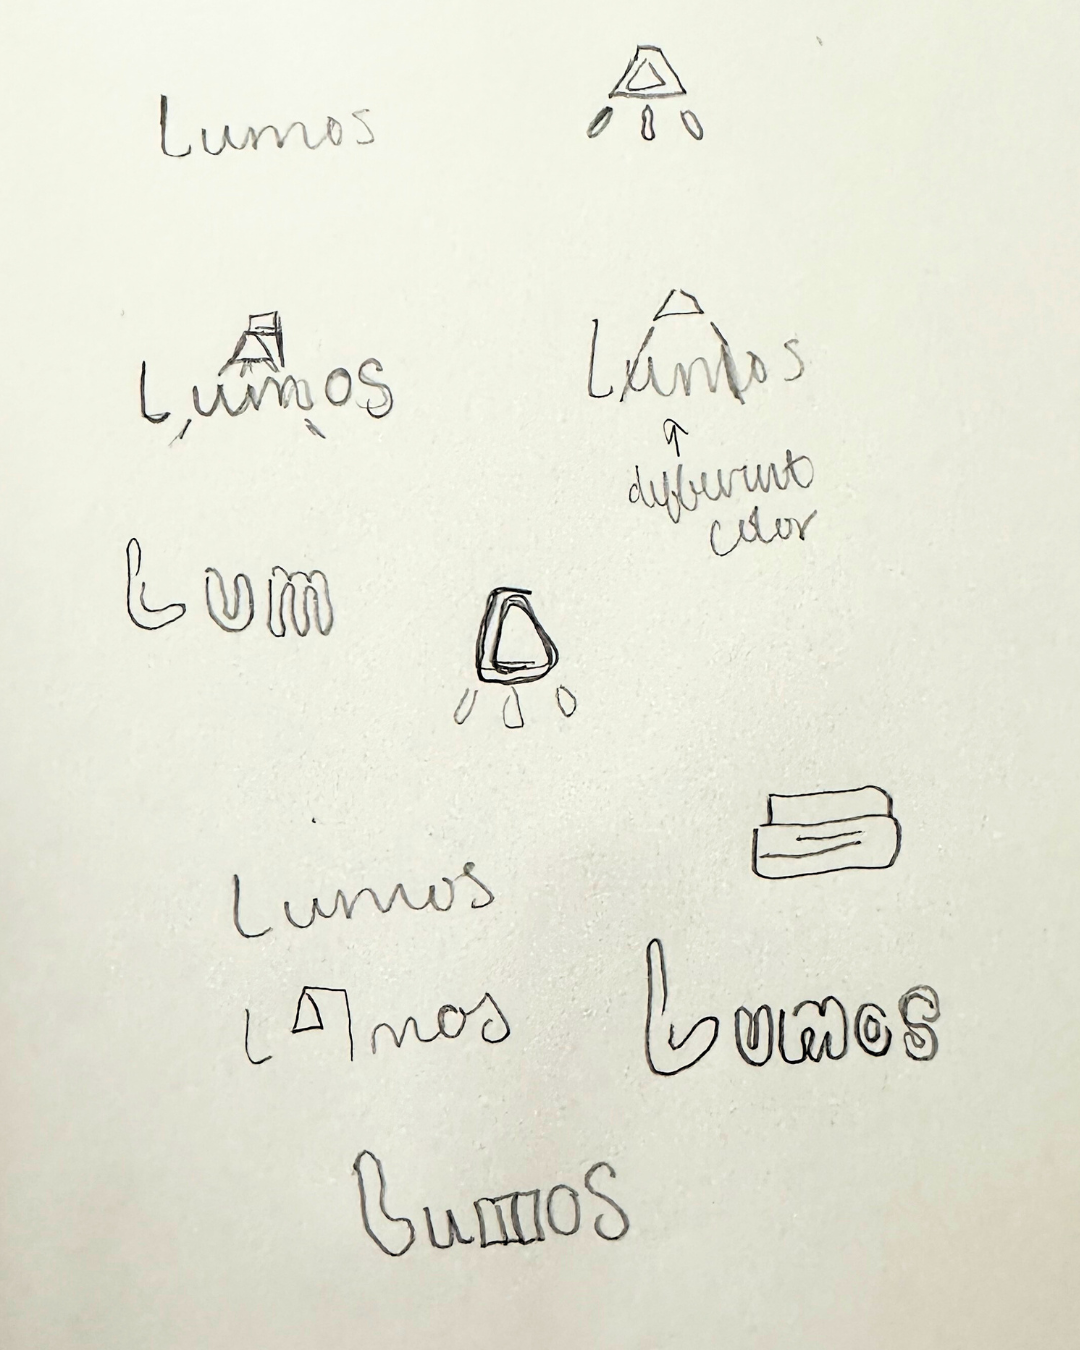 Lumos
Lumos
Lumos
different
color
Lum
Lumos
L mos
Lumos
Lumos